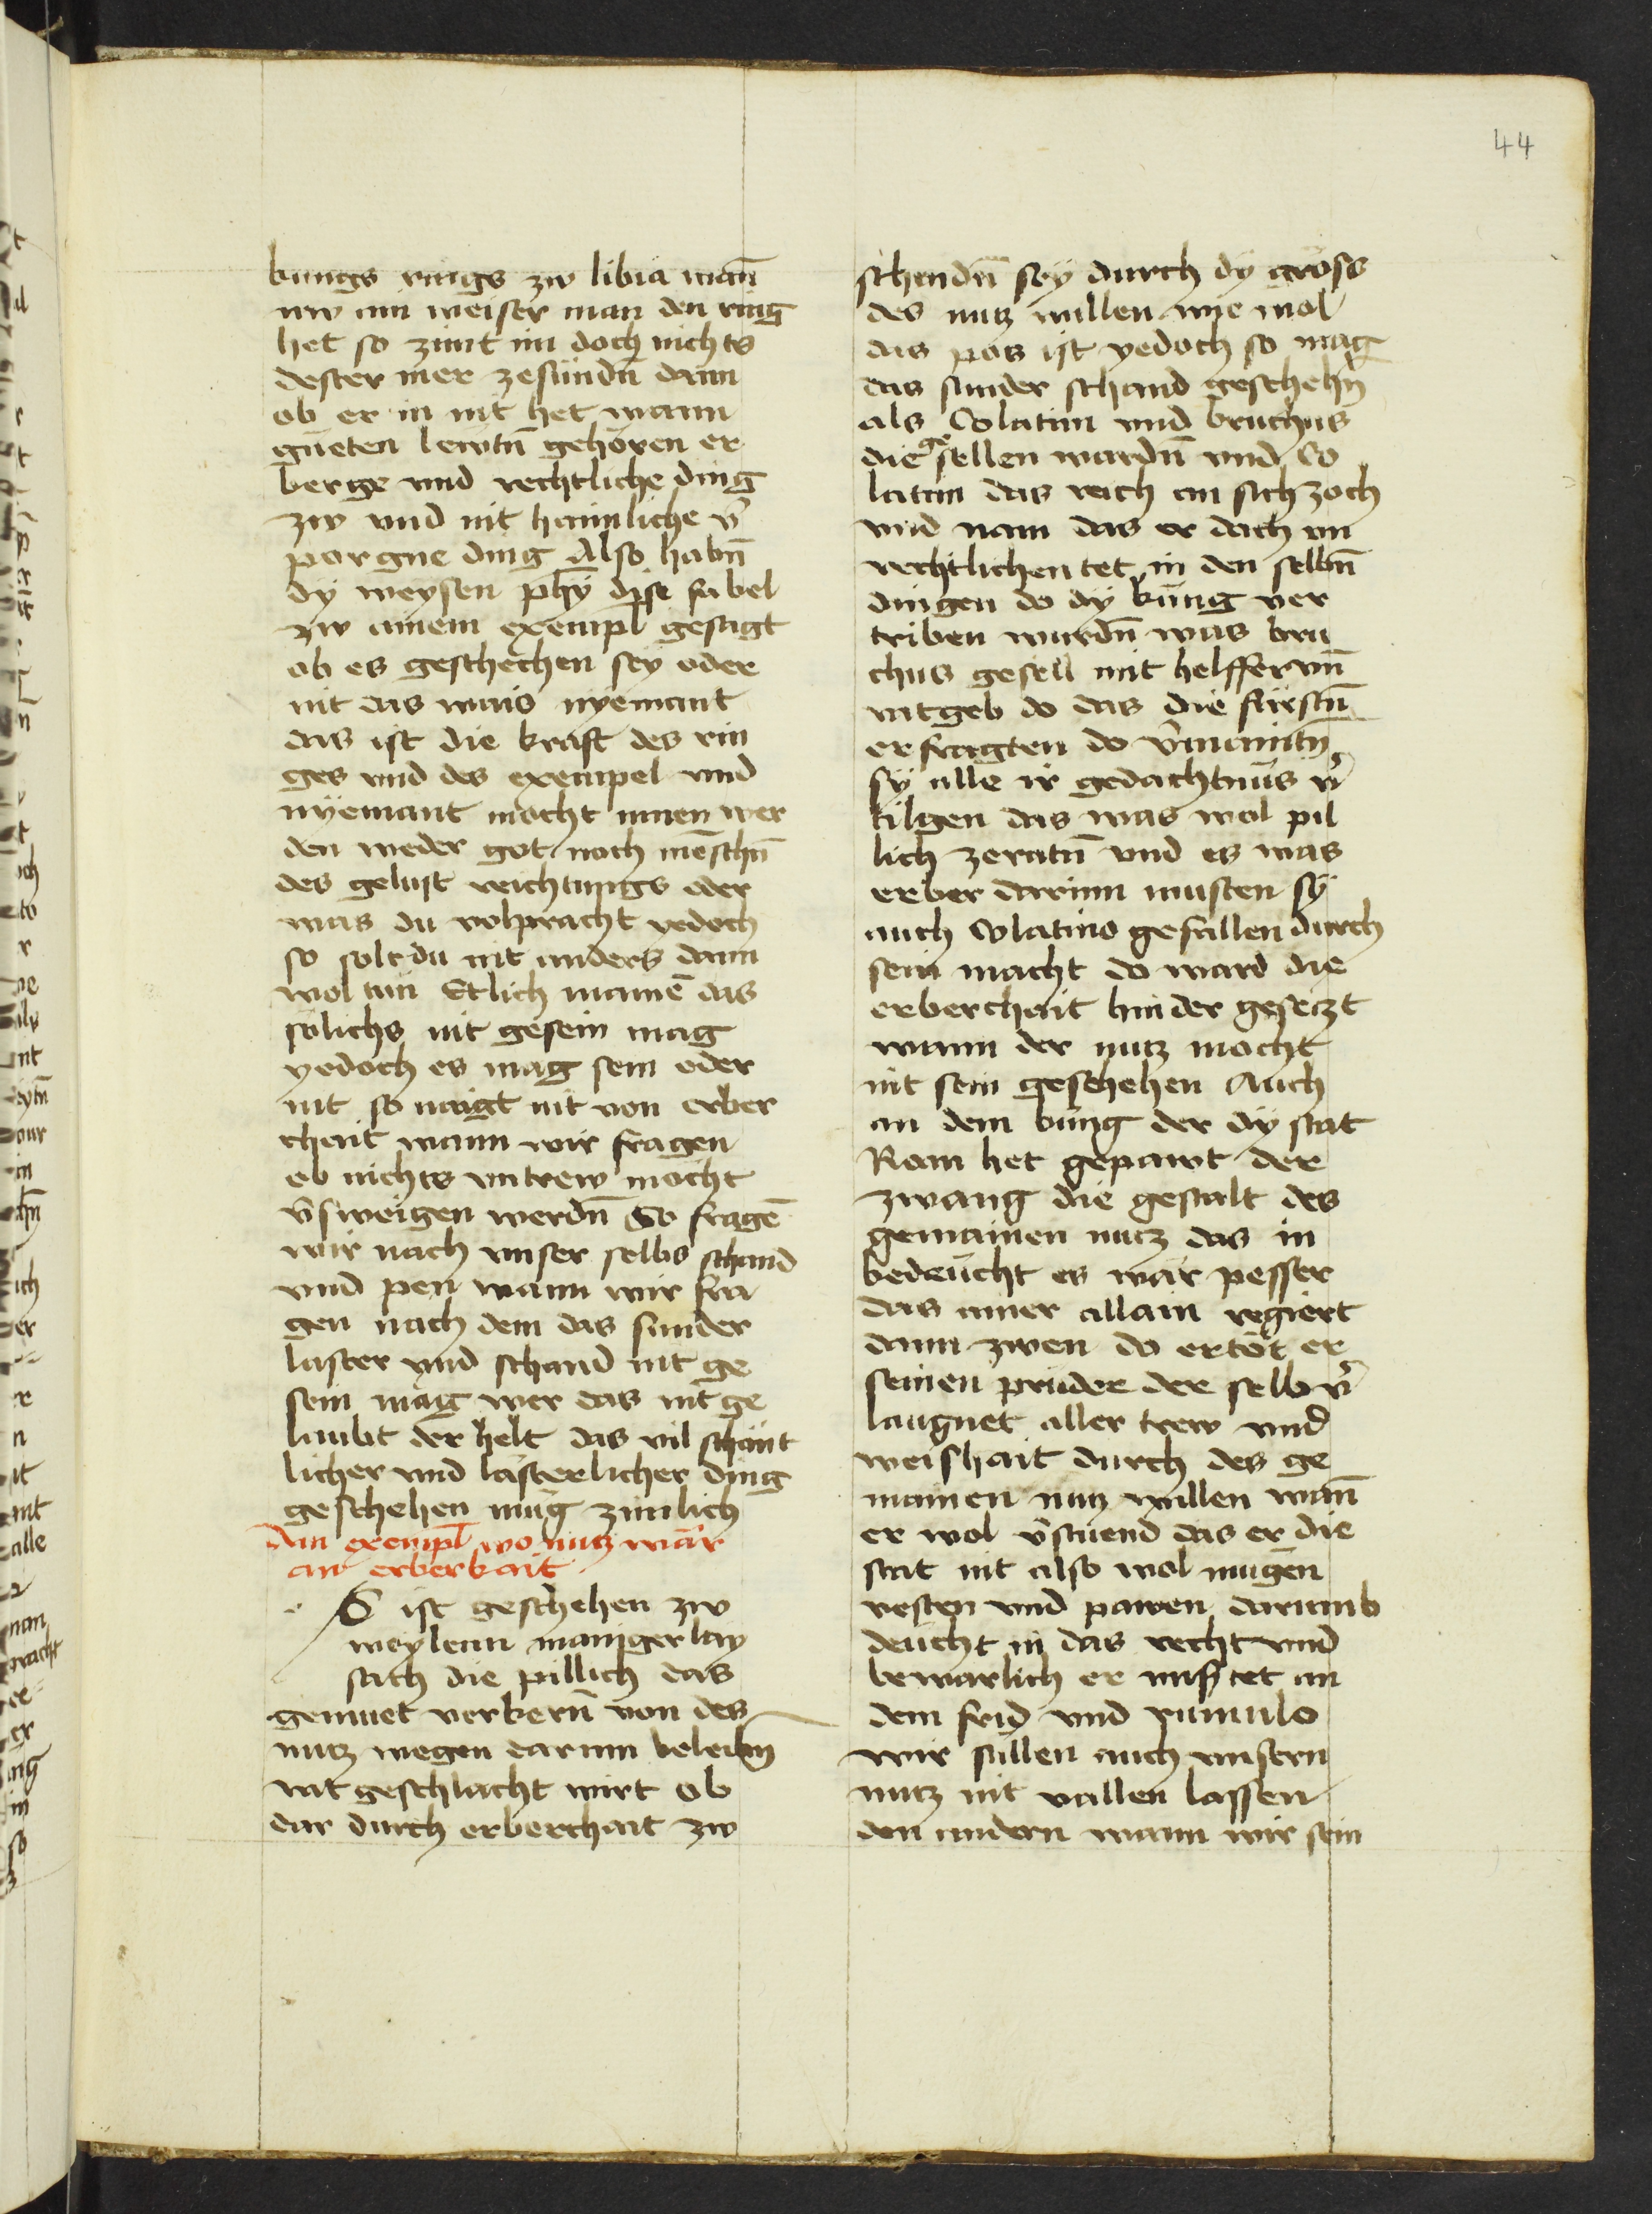 44
kungs rings zw libia wañ
nw ain weiser man den ring
het so zimt im doch nichts
dester mer zesündñ dann
ob er in nit het wann
güeten lewtñ gehören er
berge vnd rechtliche ding
zw vnd nit haimliche v̄
porgne ding Also habñ
dÿ weysen phÿ dise fabel
zw ainem exempl gesagt
ob es geschechen seÿ oder
nit das wais nyemant
das ist die kraft des rin
ges vnd des exempel vnd
nÿemant mocht innen wer
den weder got noch mēschñ
des gelust reichtungs oder
was du volpracht yedoch
so solt du nit anders dann
wol tün Etlich mainē das
sölichs nit gesein mag
yedoch es mag sein oder
nit so naigt nit von erber
chait wann wir fragen
ob nichts vntrew möcht
v̄sweigen werdñ So fragē
wir nach vnser selbs schand
vnd pen wann wir fra
gen nach dem das sunder
laster vnd schand nit ge
sein mag wer das nit ge
laubt der helt das vil schänt
licher vnd lästerlicher ding
geschehen mug zimlich
Ain exempl wo nutz wär
an erberkait
S ist geschehen zw
weylenn manigerlay
sach die pillich das
gemuet verkerñ von des
nutz wegen darinn
nit geschlacht wirt ob
dar durch erberchait zw
schendñ seÿ durch dÿ gröss
des nutz willen wie wol
das pös ist yedoch so mag
das sunder schand geschehñ
als Colatim vnd bruchus
die gesellen wardñ vnd Co
latim das reich an sich zoch
vnd nam das er doch vn
rechtlichen tet in den selbñ
dingen do dÿ küng ver
triben wurdñ was bru
chus gesell mit helffer vñ
ratgeb do das die fürstñ
erfragten do v̄mainitñ
sÿ alle ir gedächtnüs v̄
tilgen das was wol pil
lich zeratñ vnd es was
erber darinn musten sÿ
auch Colatino gefallen durch
sein macht do ward die
erberchait hinder gesetzt
wann der nutz mocht
nit sein geschehen Auch
an dem küng der dÿ stat
Rom het gepawt der
zwang die gestalt des
gemainen nutz das in
bedeücht es wär pesser
das ainer allain regiert
dann zwen do ertöt er
seinen prüder der selb v̄
laugnet aller trew vnd
weishait durch des ge
mainen nutz willen wañ
er wol v̄stüend das er die
stat nit also wol mügen
vesten vnd pawen darumb
deücht in das recht vnd
bewarlich er misstet an
dem frid vnd rumulo
wir süllen auch vnsern
nutz nit vallen lassen
den andern wann wir sein